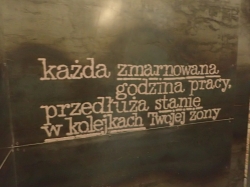 każda zmarnowana
godzina pracy,
przedłuża stanie
w kolejkach Twojej żony